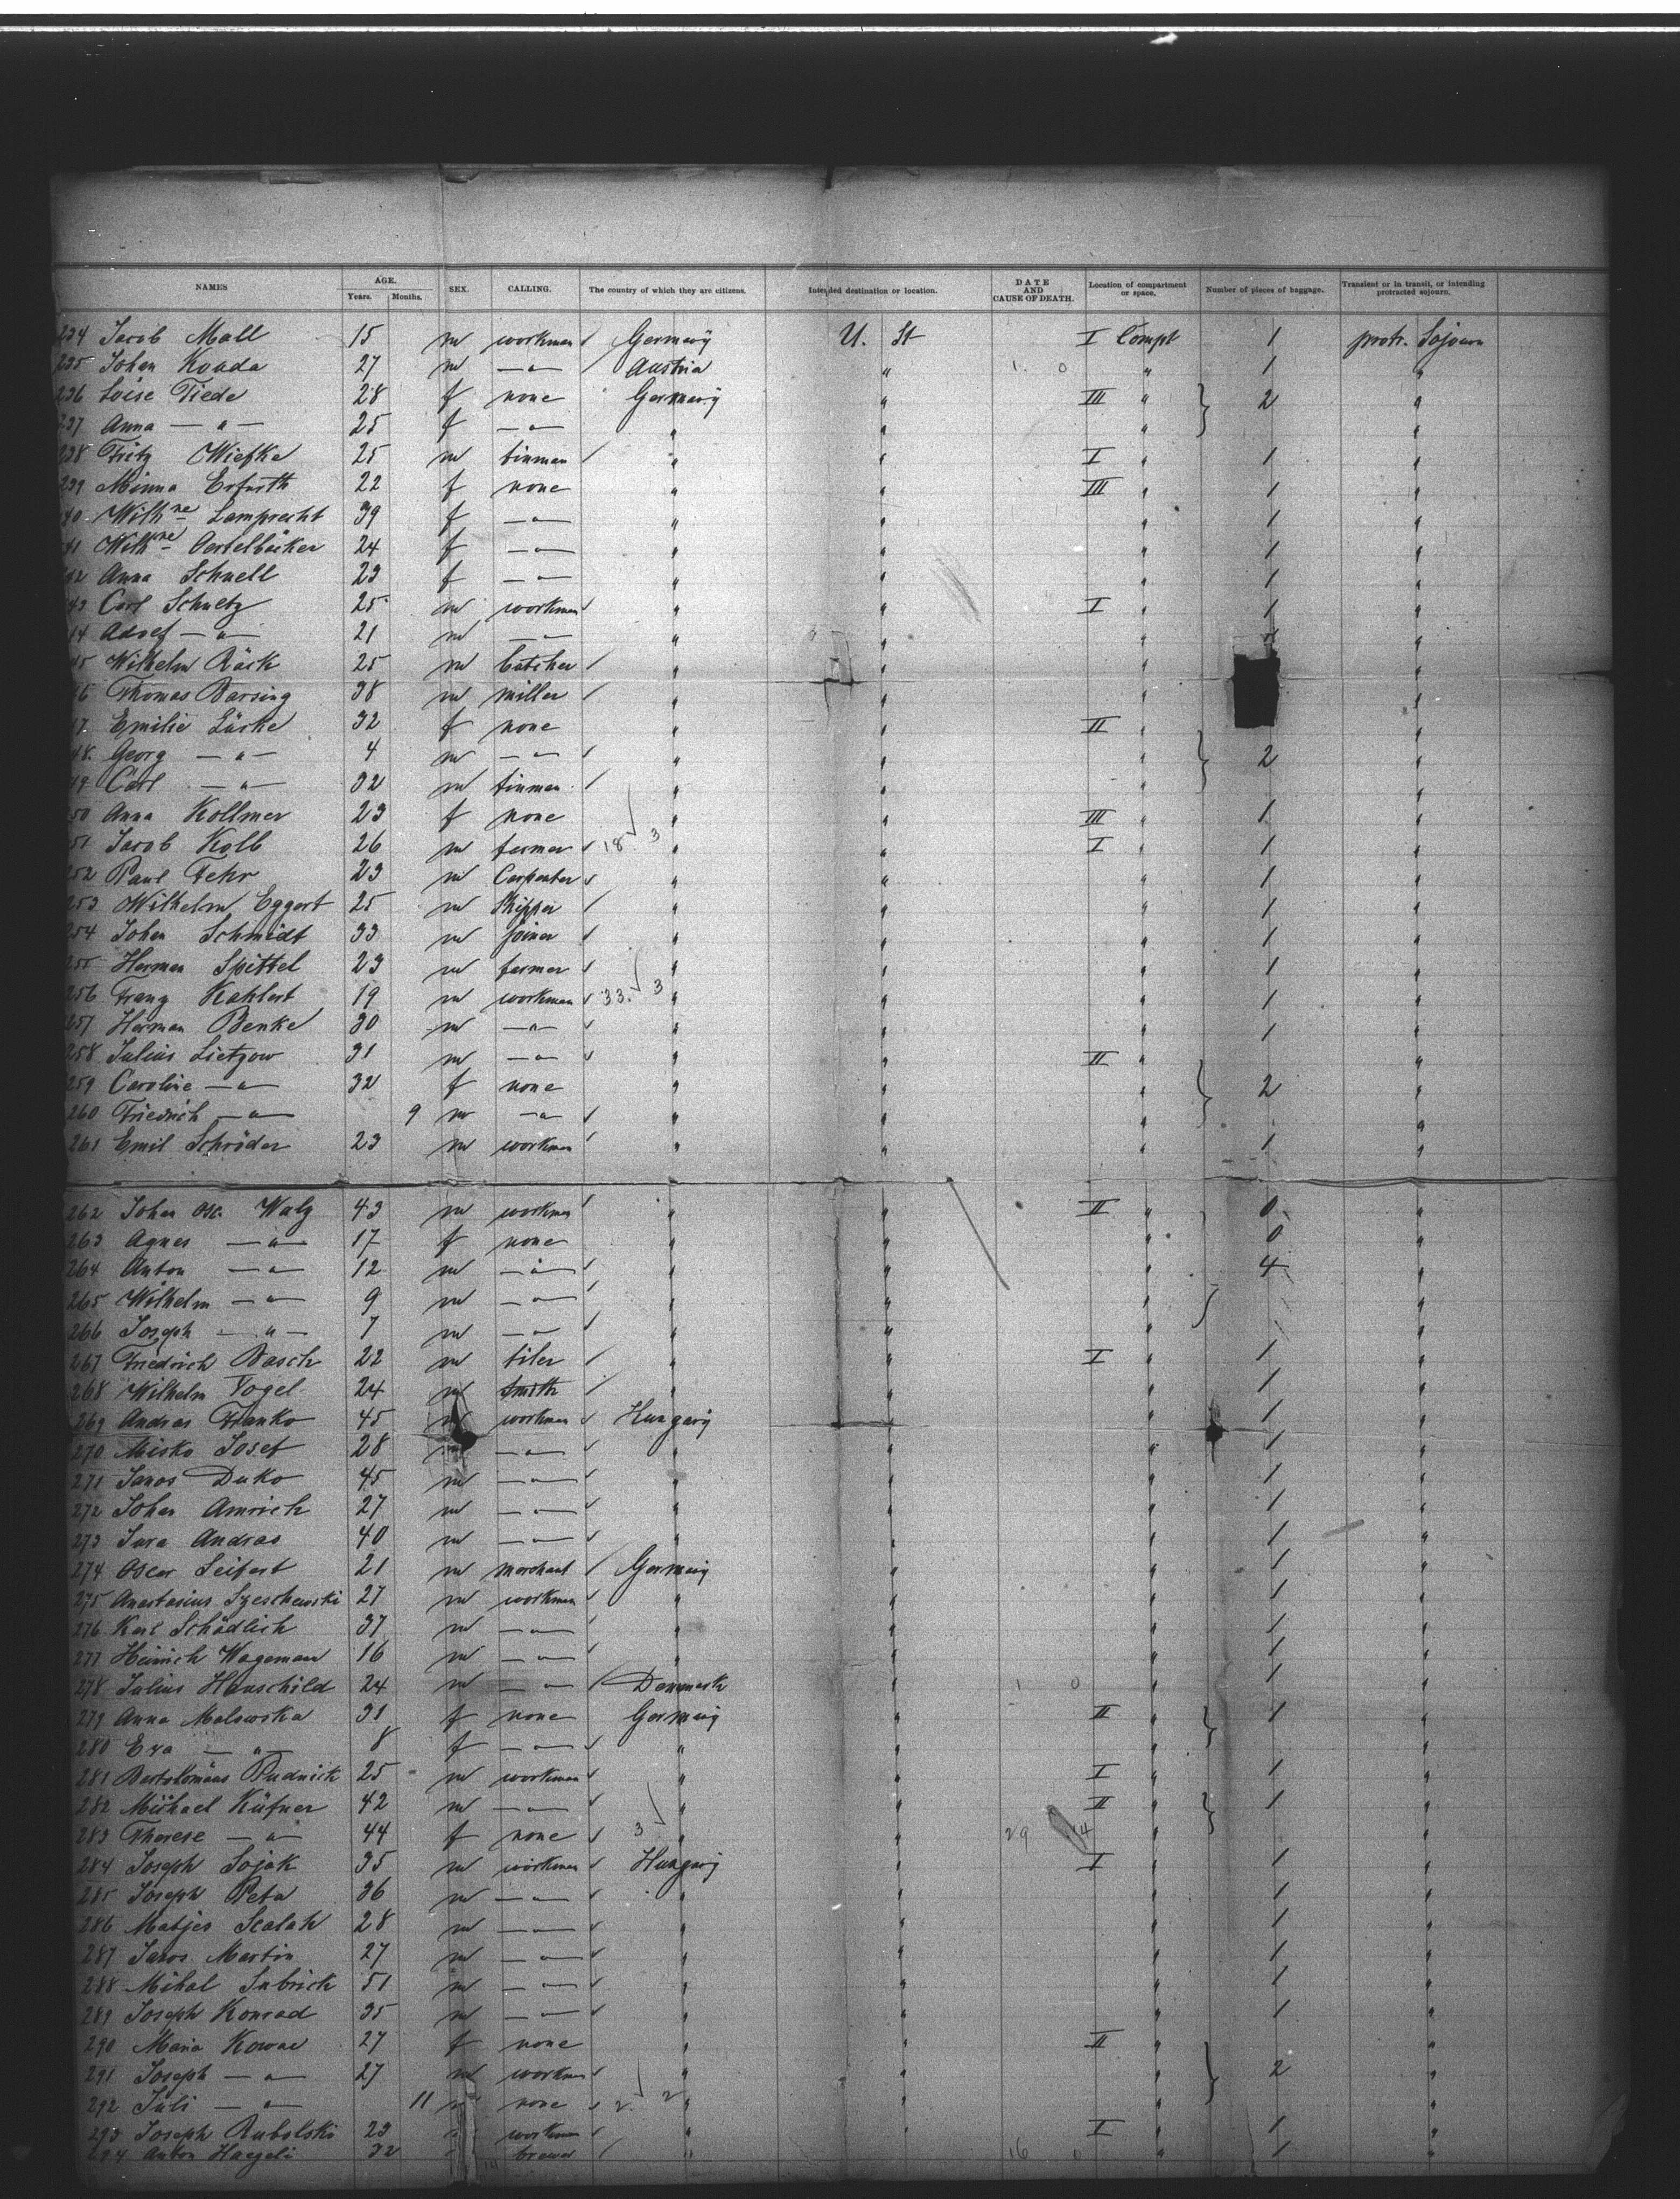 NAMES AGE. Years. Months. SEX. CALLING. The country of which they are citizens. Intended destination or location. DATE AND CAUSE OF DEATH. Location of compartment or space. Number of pieces of baggage. Transient or in transit, or intending protracted sojourn.
234 Jacob Mall 15 m workman Germany U. St I Compt 1 protr. Sojourn
235 Johan Kouda 27 m —"— Austria " 1 0 " 1 "
236 Loise Tiede 28 f none Germany " III " 2 "
237 Anna —"— 25 f —"— " " " "
238 Fritz Wiefke 25 m tinman " " I " 1 "
239 Minna Erfurth 22 f none " " III " 1 "
40 Wilhne Lamprecht 39 f —"— " " " 1 "
41 Wilhne Oertelbäcker 24 f —"— " " " 1 "
42 Anna Schnell 23 f —"— " " " 1 "
43 Carl Schultz 25 m workman " " I " 1 "
44 Adolf —"— 21 m —"— " " " "
45 Wilhelm Räck 25 m butcher " " " "
46 Thomas Barsing 38 m miller " " " "
47 Emilie Lüske 32 f none " " II " "
48. Georg —"— 4 m —"— " " " 2 "
49 Carl —"— 32 m tinman " " " "
50 Anna Kollmer 23 f none " " III " 1 "
51 Jacob Kolb 26 m farmer 18. 3 " " I " 1 "
252 Paul Fehr 23 m Carpenter " " " 1 "
253 Wilhelm Eggert 25 m Skipper " " " 1 "
254 Johan Schmidt 33 m joiner " " " 1 "
255 Herman Spittel 23 m farmer " " " 1 "
256 Franz Kahlert 19 m workman 33. 3 " " " 1 "
257 Herman Benke 30 m —"— " " " 1 "
258 Julius Lietzow 31 m —"— " " II " "
259 Caroline —"— 32 f none " " " 2 "
260 Friedrich —"— 9 m —"— " " " "
261 Emil Schröder 23 m workman " " " 1 "
262 Johan Osc. Walz 43 m workman " " II " 0 "
263 Agnes —"— 17 f none " " " 0 "
264 Anton —"— 12 m —"— " " " 4 "
265 Wilhelm —"— 9 m —"— " " " "
266 Joseph —"— 7 m —"— " " " "
267 Friedrich Basch 22 m tiler " " I " 1 "
268 Wilhelm Vogel 24 m smith " " " 1 "
269 Andras Franko 45 m workman Hungary " " 1 "
270 Misko Josef 28 m —"— " " " 1 "
271 Janos Duko 45 m —"— " " " 1 "
272 Johan Amrich 27 m —"— " " " 1 "
273 Jura Andras 40 m —"— " " " 1 "
274 Oscar Seifert 21 m merchant Germany " " 1 "
275 Anastasius Szeschewski 27 m workman " " " 1 "
276 Karl Schädlich 37 m —"— " " " 1 "
277 Heinrich Wageman 16 m —"— " " " 1 "
278 Julius Hauschild 24 m —"— Denmark " 1 0 " 1 "
279 Anna Malowska 31 f none Germany " II " 1 "
280 Eva —"— 8 f —"— " " " "
281 Bartolomäus Pudnick 25 m workman " " I " 1 "
282 Michael Küfner 42 m —"— " " II " 1 "
283 Therese —"— 44 f none 3 " " 29 14 " "
284 Joseph Sojak 35 m workman Hungary " I " 1 "
285 Joseph Peta 36 m —"— " " " 1 "
286 Matjes Scalak 28 m —"— " " " 1 "
287 Janos Martin 27 m —"— " " " 1 "
288 Mihal Subrick 51 m —"— " " " 1 "
289 Joseph Konrad 35 m —"— " " " 1 "
290 Maria Kowac 27 f none " " II " "
291 Joseph —"— 27 m workman " " " 2 "
292 Juli —"— 11 none 2. 2 " " " "
293 Joseph Rubolski 23 workman " " I " 1 "
294 Anton Haegeli 32 brewer " " 16 0 " 1 "